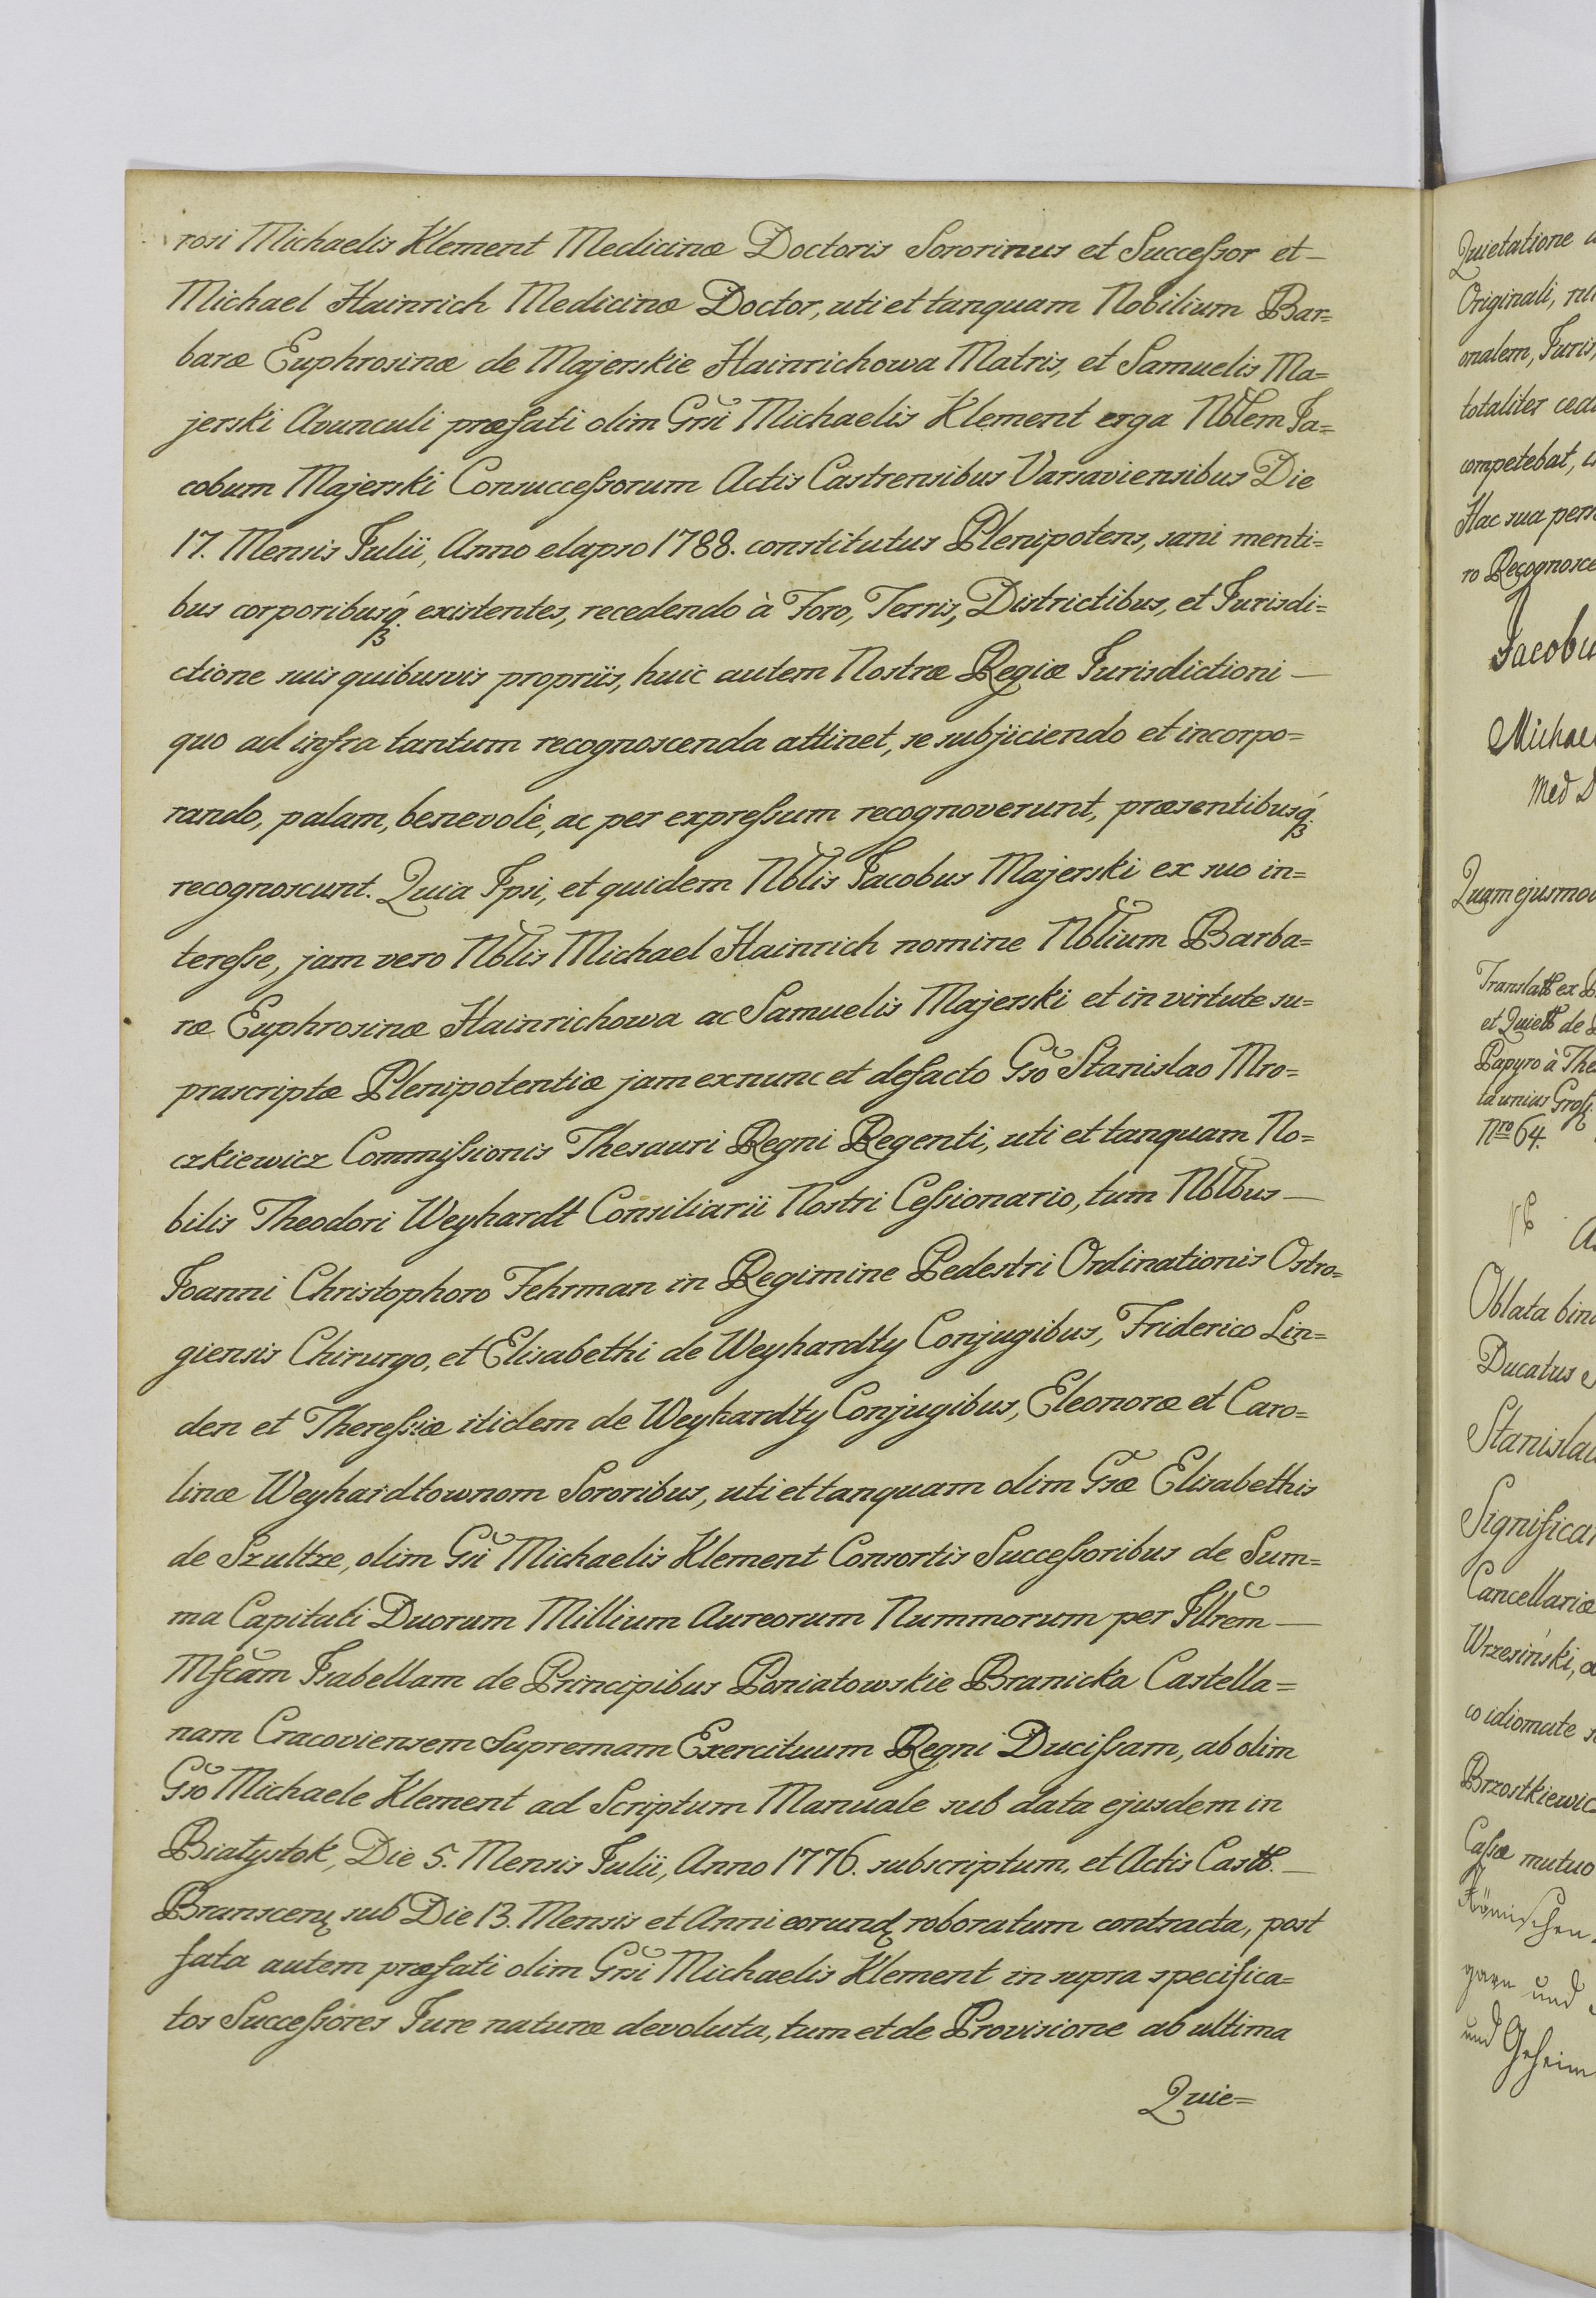 rosi Michaelis Klement Medicinæ Doctoris Sororinus et Successor et —
Michael Hainrich Medicinæ Doctor, uti et tanquam Nobilium Bar=
baræ Euphrosinæ de Majerskie Hainrichowa Matris, et Samuelis Ma=
jerski Avunculi præfati olim Grsi Michaelis Klement erga Nblem Ja=
cobum Majerski Consuccessorum Actis Castrensibus Varsaviensibus Die
17. Mensis Julii, Anno elapso 1788. constitutus Plenipotens, sani menti=
bus corporibusq́ existentes, recedendo à Foro, Terris, Districtibus, et Jurisdi=
ctione suis quibusvis propriis, huic autem Nostræ Regiæ Jurisdictioni —
quo ad infra tantum recognoscenda attinet, se subjiciendo et incorpo=
rando, palam, benevolè, ac per expressum recognoverunt, præsentibusq́
recognoscunt. Quia Ipsi, et quidem Nblis Jacobus Majerski ex suo in=
teresse, jam vero Nblis Michael Hainrich nomine Nblium Barba=
ræ Euphrosinæ Hainrichowa ac Samuelis Majerski et in virtute su=
prascriptæ Plenipotentiæ jam exnunc et defacto Gso Stanislao Mro=
czkiewicz Commissionis Thesauri Regni Regenti, uti et tanquam No=
bilis Theodori Weyhardt Consiliarii Nostri Cessionario, tum Nblbus —
Joanni Christophoro Fehrman in Regimine Pedestri Ordinationis Ostro=
giensis Chirurgo, et Elisabethi de Weyhardty Conjugibus, Friderico Lin=
den et Theressiæ itidem de Weyhardty Conjugibus, Eleonoræ et Caro=
linæ Weyhardtownom Sororibus, uti et tanquam olim Gsæ Elisabethis
de Szultze, olim Gsi Michaelis Klement Consortis Successoribus de Sum=
ma Capitali Duorum Millium Aureorum Nummorum per Illrem —
Mfcam Isabellam de Principibus Poniatowskie Branicka Castella=
nam Cracoviensem Supremam Exercituum Regni Ducissam, ab olim
Gso Michaele Klement ad Scriptum Manuale sub data ejusdem in
Białystok, Die 5. Mensis Julii, Anno 1776. subscriptum, et Actis Castb. —
Branscen sub Die 13. Mensis et Anni eorund roboratum contracta, post
fata autem præfati olim Grsi Michaelis Klement in supra specifica=
tos Successores Jure naturæ devoluta, tum et de Provisione ab ultima
Quie=
Quietatione
Originali,
onalem, Juris,
totaliter
competebat,
Hac sua
ro
Michae
Med D
Quam
Translatb ex
et Quietb de
Papyro à
ta unius
Nro 64.
Oblata
Ducatus
Cancellariæ
Wrzesiński,
co idiomate
Cassæ mutuo
Römischen
und
und Geheim